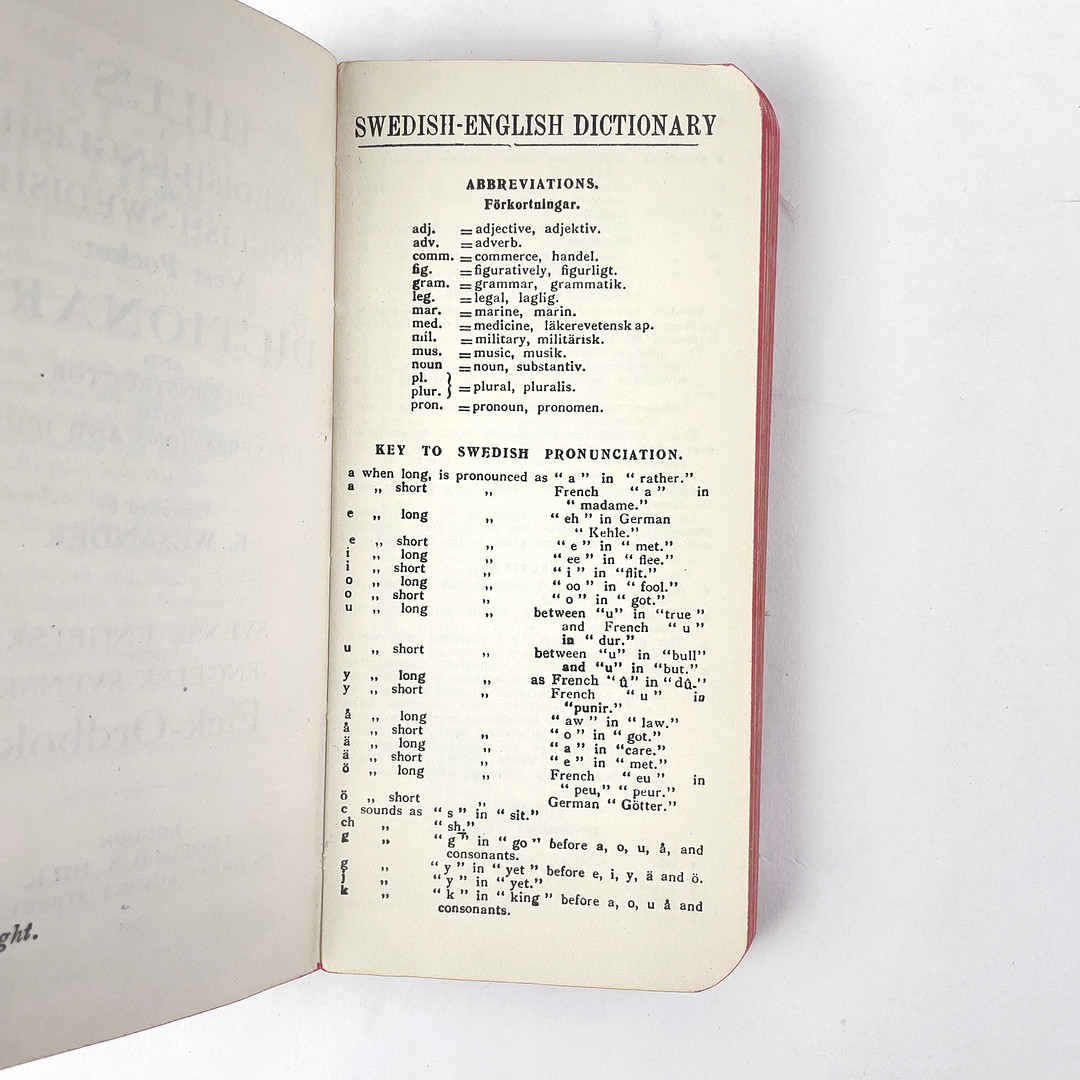 ght.
SWEDISH-ENGLISH DICTIONARY
ABBREVIATIONS.
Förkortningar.
adj. = adjective, adjektiv.
adv. = adverb.
comm. = commerce, handel.
fig. = figuratively, figurligt.
gram. = grammar, grammatik.
leg. = legal, laglig.
mar. = marine, marin.
med. = medicine, läkerevetenskap.
mil. = military, militärisk.
mus. = music, musik.
noun = noun, substantiv.
pl.
plur. } = plural, pluralis.
pron. = pronoun, pronomen.
KEY TO SWEDISH PRONUNCIATION.
a when long, is pronounced as “ a ” in “ rather.”
a „ short „ French “ a ” in
“ madame.”
e „ long „ “ eh ” in German
“ Kehle.”
e „ short „ “ e ” in “ met.”
i „ long „ “ ee ” in “ flee.”
i „ short „ “ i ” in “flit.”
o „ long „ “ oo ” in “ fool.”
o „ short „ “ o ” in “ got.”
u „ long „ between “u” in “true ”
and French “ u ”
in “ dur.”
u „ short „ between “u” in “bull”
and “u” in “but.”
y „ long „ as French “ û ” in “ dû.”
y „ short „ French “ u ” in
“punir.”
å „ long “ aw ” in “ law.”
å „ short „ “ o ” in “ got.”
ä „ long „ “ a ” in “care.”
ä „ short „ “ e ” in “ met.”
ö „ long „ French “ eu ” in
“ peu,” “ peur.”
ö „ short „ German “ Götter.”
c sounds as “ s ” in “ sit.”
ch „ “ sh.”
g „ “ g ” in “ go ” before a, o, u, å, and
consonants.
g „ “ y ” in “ yet ” before e, i, y, ä and ö.
j „ “ y ” in “ yet.”
k „ “ k ” in “ king ” before a, o, u å and
consonants.